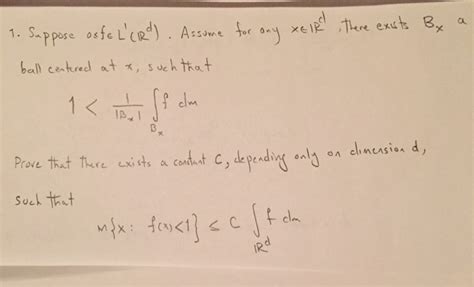 1. Suppose 0≤f∈L¹(ℝᵈ). Assume for any x∈ℝᵈ, there exists Bₓ a
ball centered at x, such that
1 < 1/|Bₓ| ∫_{Bₓ} f dm
Prove that there exists a constant C, depending only on dimension d,
such that
m{x: f(x)<1} ≤ C ∫_{ℝᵈ} f dm